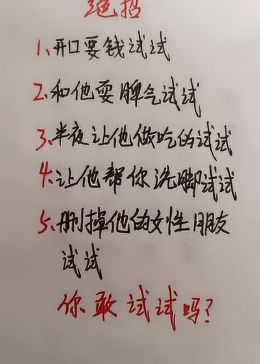 绝招
1、开口要钱试试
2、和他耍脾气试试
3、半夜让他做吃的试试
4、让他帮你洗脚试试
5、删掉他的女性朋友
试试
你敢试试吗？